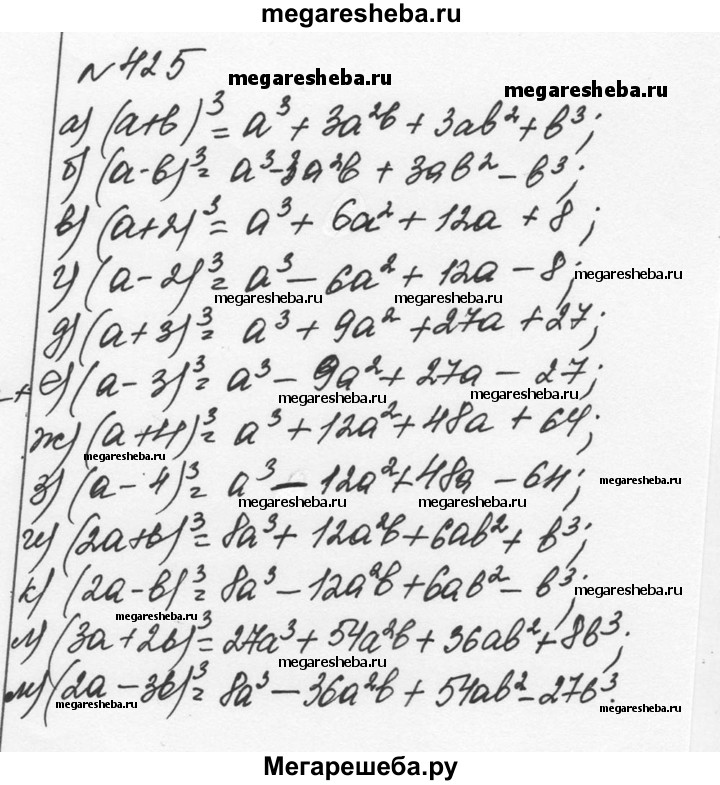 megaresheba.ru
№ 425
megaresheba.ru
megaresheba.ru
а) (a+b)³ = a³ + 3a²b + 3ab² + b³;
б) (a-b)³ = a³ - 3a²b + 3ab² - b³;
в) (a+2)³ = a³ + 6a² + 12a + 8;
г) (a-2)³ = a³ - 6a² + 12a - 8;
megaresheba.ru
megaresheba.ru
megaresheba.ru
д) (a+3)³ = a³ + 9a² + 27a + 27;
е) (a-3)³ = a³ - 9a² + 27a - 27;
megaresheba.ru
megaresheba.ru
ж) (a+4)³ = a³ + 12a² + 48a + 64;
megaresheba.ru
з) (a-4)³ = a³ - 12a² + 48a - 64;
megaresheba.ru
megaresheba.ru
megaresheba.ru
и) (2a+b)³ = 8a³ + 12a²b + 6ab² + b³;
к) (2a-b)³ = 8a³ - 12a²b + 6ab² - b³;
megaresheba.ru
megaresheba.ru
л) (3a+2b)³ = 27a³ + 54a²b + 36ab² + 8b³;
megaresheba.ru
м) (2a-3b)³ = 8a³ - 36a²b + 54ab² - 27b³.
megaresheba.ru
megaresheba.ru
megaresheba.ru
Мегарешеба.ру